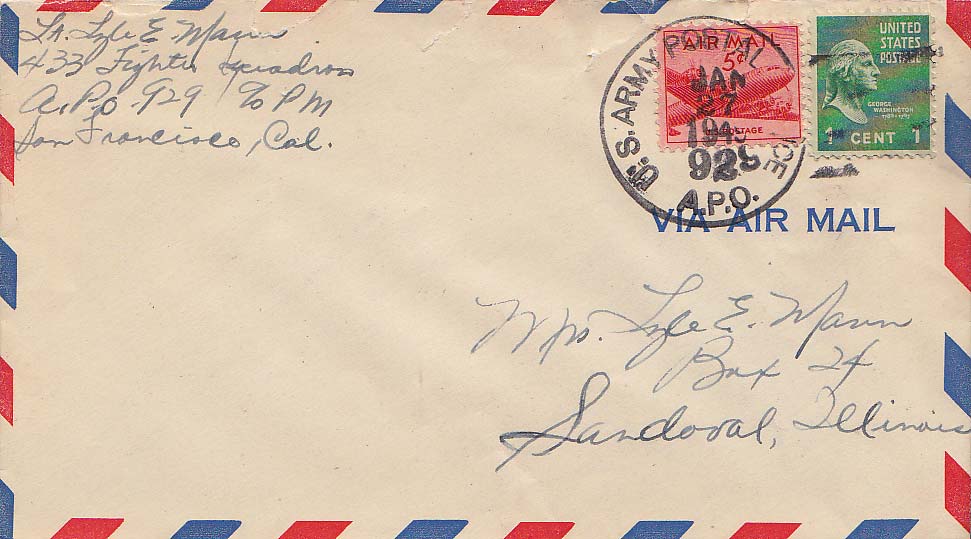 Lt. Lyle E. Mann
433 Fighter Squadron
A.P.O. 929 % PM
San Francisco, Cal.
U.S. ARMY POSTAL
A.P.O.
JAN
AIR MAIL
5¢
POSTAGE
UNITED
STATES
POSTAGE
GEORGE
WASHINGTON
1 CENT 1
VIA AIR MAIL
Mrs. Lyle E. Mann
Box 24
Sandoval, Illinois